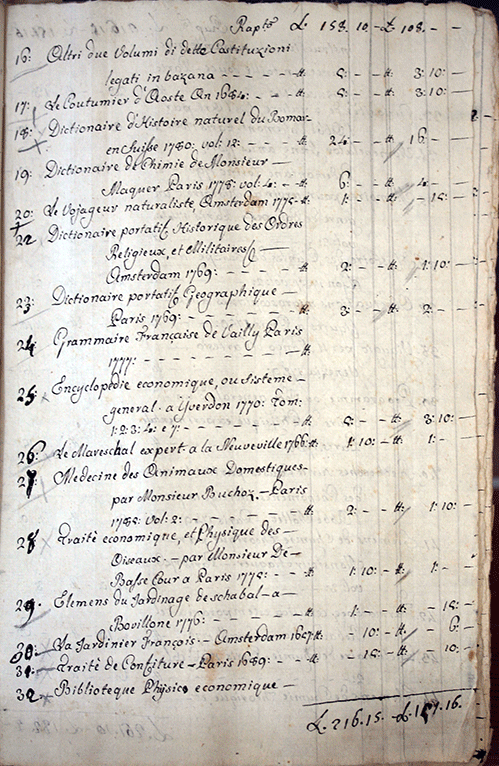 Rap.to £ 158. 10 - £ 108. -
16: Altri due Volumi di dette Costituzioni
legati in bazana - - - - - tt: 5: - - tt: 3: 10: -
17: Le Coutumier d'Aoste An 1684: - - - tt: 5: - - tt: 3: 10: -
18: Dictionaire d'Histoire naturel du Bomar-
en Suisse 1780: vol: 12: - - - tt: 24 - - tt: 16 -
19: Dictionaire de Chimie de Monsieur -
Maquer Paris 1778: vol: 4: - - tt: 6: - - tt: 4 -
20: Le Vojageur naturaliste, Amsterdam 1775 - tt: 1: - - tt: - 15: -
22 Dictionaire portatif Historique des Ordres
Religieux, et Militaires -
Amsterdam 1769: - - - - - tt: 2: - - tt: 1: 10: -
23: Dictionaire portatif Geographique -
Paris 1769: - - - - - - - tt: 3: - - tt: 2: -
24 Grammaire Française de Vailly Paris
1777: - - - - - - - - - tt:
25: Encyclopedie economique, ou Sisteme -
general - a Yverdon 1770: Tom:
1: 2: 3: 4: e 7: - - - - - - tt: 5: - - tt: 3: 10: -
26: Le Mareschal expert a la Neuveville 1766: tt: 1: 10: - tt: 1: -
27: Medecine des Animaux Domestiques -
par Monsieur Buchoz - Paris
1782: Vol: 2: - - - - - - tt: 2: - - tt: 1: 10: -
28 Traitè economique, et Physique des -
Oiseaux - - par Monsieur De -
Basse Cour a Paris 1775: - - tt: 1: 10: - tt: 1: -
29: Elemens du Jardinage de schabal - a -
Bovillone 1776: - - - - - tt: 1: - - tt: - 15: -
30: La Jardinier François - Amsterdam 1657 tt: - 10: - tt: - 6: -
31: Traitè de Confiture - Paris 1689: - - tt: - 15: - tt: - 10: -
32 Biblioteque Phisico economique -
£. 216. 15. - £. 147. 16.